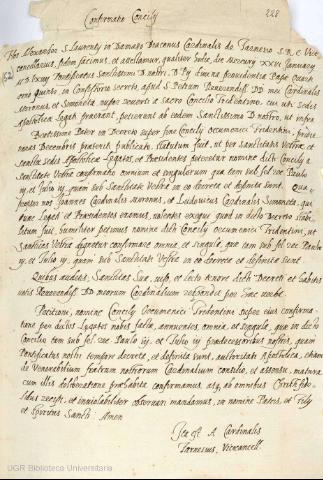 Confirmatio Concilij
228
Nos Alexander S. Laurentij in Damaso Diaconus Cardinalis de Farnesio S. R. E. Vice
cancellarius, fidem facimus, et attestamur, qualiter hodie, die Mercurij XXVI Ianuarij
M D LXIIIJ Pontificatus Sanctissimi D. nostri, D. Pij divina providentia Papae Quarti
anno quinto, in Consistorio secreto, apud S. Petrum Reverendiss. DD mei Cardinales
Moronus, et Simoneta nuper reversi a sacro Concilio Tridentino, cui uti sedis
Apostolicae legati praeerant, petierunt ab eodem Sanctissimo D. nostro, ut infra
Beatissime Pater in Decreto super fine Concilij Oecumenici Tridentini, pridie
nonas Decembris praeteriti publicato, statutum fuit, ut per sanctitatis vestrae, et
sanctae sedis Apostolicae Legatos, et Praesidentes peteretur nomine dicti Concilij a
Sanctitate Vestra confirmatio omnium et singulorum quae tam sub fel. rec. Paulo
iij. et Iulio iij. quam sub Sanctitate Vestra in eo decreta et definita sunt. Qua
propter nos Joannes Cardinalis Moronus, et Ludovicus Cardinalis Simoneta, qui
tunc Legati et Praesidentes eramus, volentes exequi quod in dicto Decreto statu
tum fuit, humiliter petimus nomine dicti Concilij Oecumenici Tridentini, ut
Sanctitas Vestra dignetur confirmare omnia, et singula, quae tam sub fel. rec. Paulo
iij. et Iulio iij. quam sub Sanctitate Vestra in eo decreta et definita sunt.
Quibus auditis, Sanctitas Sua, viso, et lecto tenore dicti Decreti, et habitis
votis Reverendiss. DD meorum Cardinalium respondit per haec verba.
Petitioni, nomine Concilij Oecumenici Tridentini super eius confirma
tione per dictos Legatos nobis facta, annuentes, omnia, et singula, quae in dicto
Concilio tam sub fel. rec. Paulo iij. et Iulio iij. praedecessoribus nostris, quam
Pontificatus nostri tempore decreta, et definita sunt, auctoritate Apostolica, etiam
de Venerabilium fratrum nostrorum Cardinalium consilio, et assensu, matura
cum illis deliberatione praehabita confirmamus, atq. ab omnibus Christi fide
libus recipi, et inviolabiliter observari mandamus, in nomine Patris, et Filij
et Spiritus Sancti Amen
Ita est A. Cardinalis
Farnesius, Vicecancell.
UGR Biblioteca Universitaria